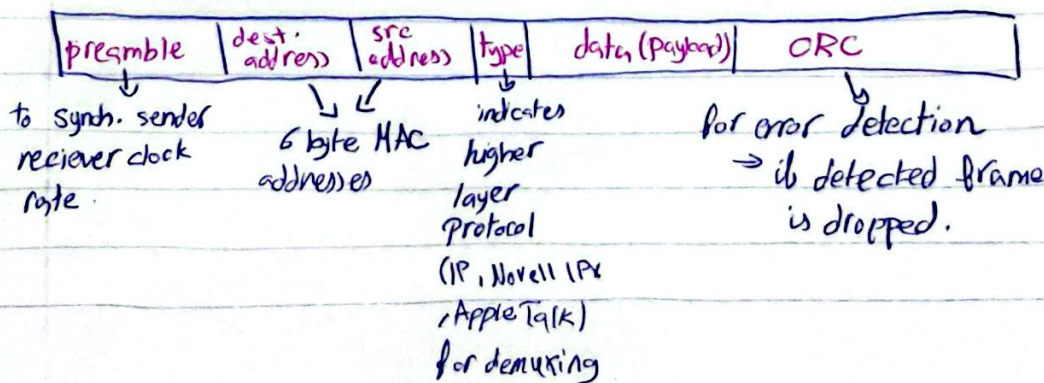 preamble
dest. address
src address
type
data (payload)
CRC
to synch. sender
reciever clock
rate.
6 byte MAC
addresses
indicates
higher
layer
protocol
(IP, Novell IPX
, AppleTalk)
for demuxing
for error detection
→ if detected frame
is dropped.